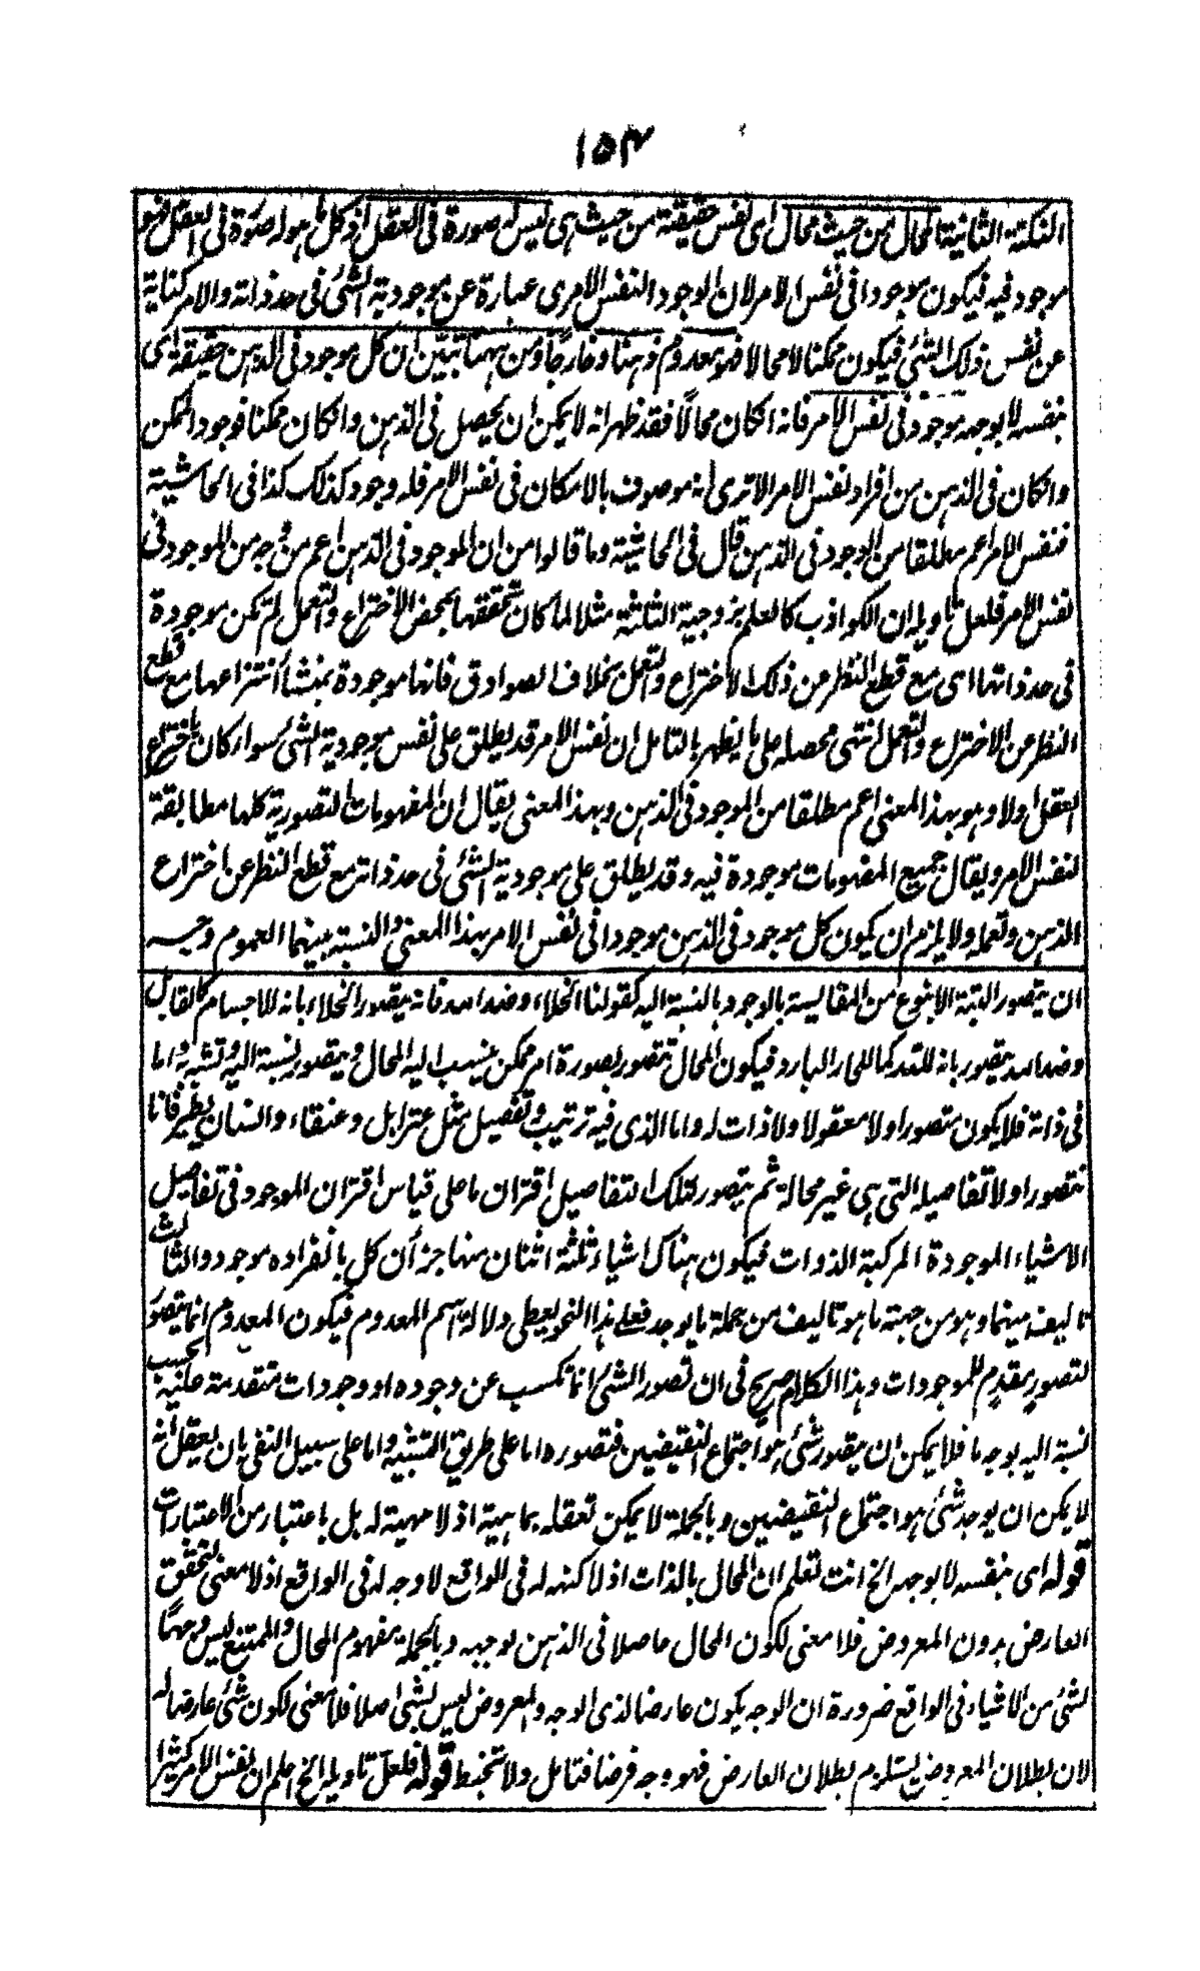 ١٥٣
النكتة الثانية المحال من حيث محال اى نفس حقيقة من حيث هى ليس له صورة فى العقل اذ كل ما هو له صورة فى العقل فهو
موجود فيه فيكون موجودا فى نفس الامر لان الوجود النفس الامرى عبارة عن موجودية الشئ فى حد ذاته والامر كناية
عن نفس ذلك الشئ فيكون ممكنا لا محالا فهو معدوم ذهنا وخارجا ومن ههنا تبين ان كل موجود فى الذهن حقيقة اى
بنفسه لا بوجهه موجود فى نفس الامر فانه انكان محالا فقد ظهر انه لا يمكن ان يحصل فى الذهن وانكان ممكنا فوجود الممكن
وانكان فى الذهن من افراد نفس الامر الا ترى انه موصوف بالامكان فى نفس الامر فله وجود كذلك كذا فى الحاشية
فنفس الامر اعم مطلقا من الوجود فى الذهن قال فى الحاشية وما قالوا من ان الموجود فى الذهن اعم من وجه من الموجود فى
نفس الامر فلعل تاويله ان الكواذب كالعلم بزوجية الثلثة مثلا لما كان تحققها بمحض الاختراع والتعمل لم تكن موجودة
فى حد ذاتها اى مع قطع النظر عن ذلك الاختراع والتعمل بخلاف الصوادق فانها موجودة بمنشأ انتزاعها مع قطع
النظر عن الاختراع والتعمل انتهى محصله على ما يظهر بالتامل ان نفس الامر قد يطلق على نفس موجودية الشئ سواء كان باختراع
العقل اولا وهو بهذا المعنى اعم مطلقا من الموجود فى الذهن وبهذا المعنى يقال ان المفهومات التصورية كلها مطابقة
لنفس الامر ويقال جميع المفهومات موجودة فيه وقد يطلق على موجودية الشئ فى حد ذاته مع قطع النظر عن اختراع
الذهن وتعمله ولا يلزم ان يكون كل موجود فى الذهن موجودا فى نفس الامر بهذا المعنى والنسبة بينهما العموم وجه
ان يتصور البتة الا بنوع من المقايسة بالوجود بالنسبة اليه كقولنا الخلاء وضد الله فانه يتصور الخلاء بانه للاجسام كالقابل
وضد الله يتصور بانه لله كما للحار البارد فيكون المحال تتصور بصورة امر ممكن ينسب اليه المحال ويتصور نسبة اليه وتشبه واما
فى ذاته فلا يكون متصورا ولا معقولا ولا ذات له واما الذى فيه ترتيب وتفصيل مثل عنزايل وعنقاء وانسان يطير فانا
نتصور اولا تفاصيله التى هى غير محالة ثم يتصور لتلك التفاصيل اقتران ما على قياس اقتران الموجود فى تفاصيل
الاشياء الموجودة المركبة الذوات فيكون هناك اشياء ثلثة اثنان منها جزأن كل بانفراده موجود والثالث
تاليف بينهما وهو من جهة ما هو تاليف من جملة ما يوجد فعلى هذا النحو يعطى دلالة اسم المعدوم فيكون المعدوم انما يتصور
لتصور مقدم للموجودات وهذا الكلام صريح فى ان تصور الشئ انما تكتسب عن وجوده او وجودات متقدمة عليه بحسب
نسبة اليه بوجه ما فلا يمكن ان يتصور شئ هو اجتماع النقيضين فتصوره اما على طريق التشبيه واما على سبيل النفى بان يعقل انه
لا يمكن ان يوجد شئ هو اجتماع النقيضين وبالجملة لا يمكن تعقله بماهية اذ لا مهية له بل باعتبار من الاعتبارات
قوله اى بنفسه لا بوجهه الخ انت تعلم ان المحال بالذات اذ لا كنه له فى الواقع لا وجه له فى الواقع اذ لا معنى لتحقق
العارض بدون المعروض فلا معنى لكون المحال حاصلا فى الذهن بوجهه وبالجملة مفهوم المحال والممتنع ليس وجها
لشئ من الاشياء فى الواقع ضرورة ان الوجه يكون عارضا لذى الوجه والمعروض ليس بشئ اصلا فلا معنى لكون شئ عارضا له
لان بطلان المعروض يستلزم بطلان العارض فهو وجه فرضا فتامل ولا تتخبط قوله فلعل تاويله الخ اعلم ان نفس الامر كثيرا